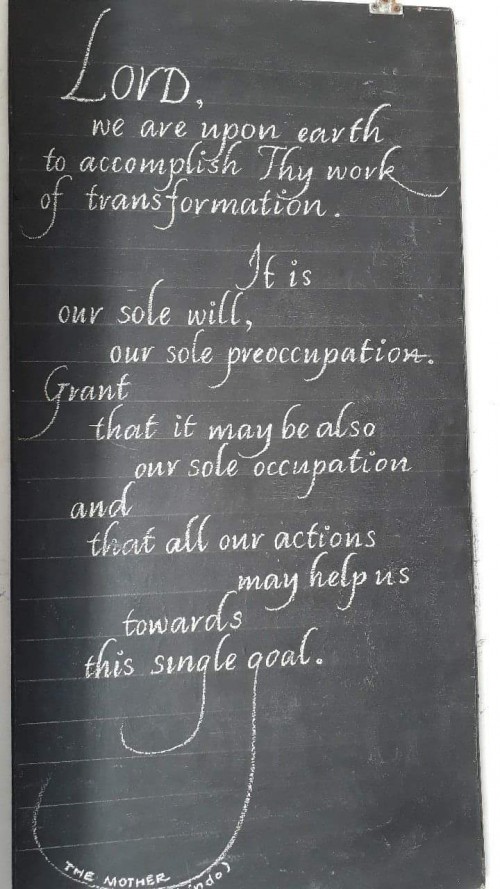 LORD,
we are upon earth
to accomplish Thy work
of transformation.
It is
our sole will,
our sole preoccupation.
Grant
that it may be also
our sole occupation
and
that all our actions
may help us
towards
this single goal.
THE MOTHER